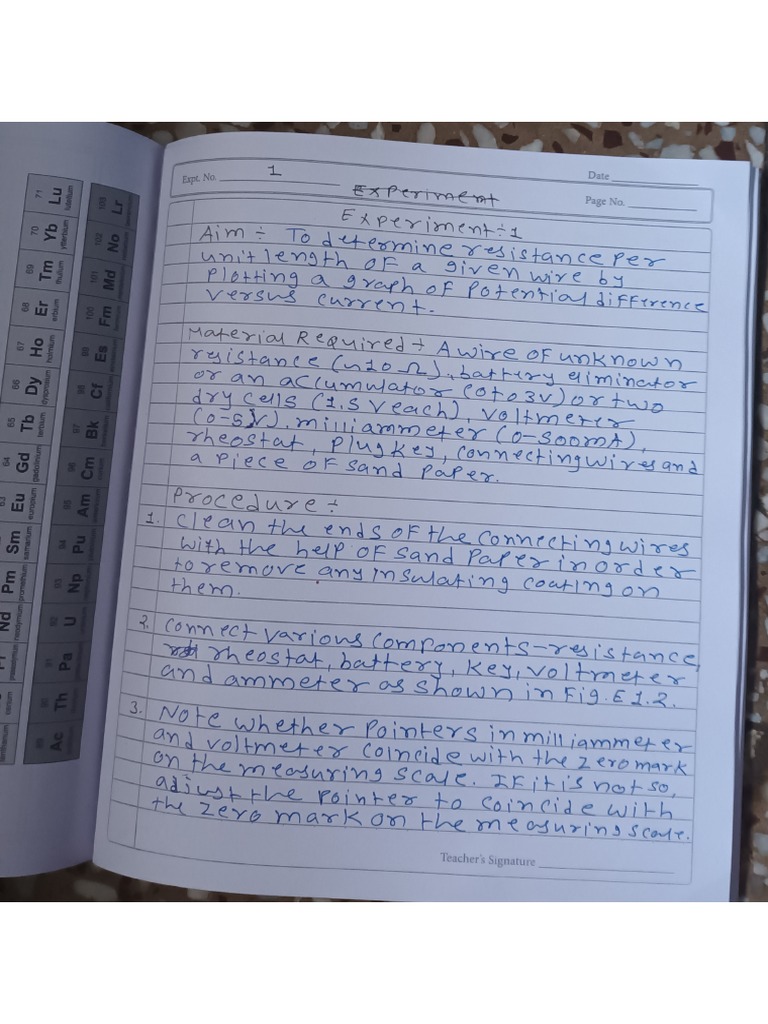 Expt. No. 1
Date
Experiment
Page No.
Experiment ÷ 1
Aim ÷ To determine resistance per
unit length of a given wire by
plotting a graph of potential difference
versus current.
Material Required ÷ A wire of unknown
resistance (~10 Ω), battery eliminator
or an accumulator (0 to 3V) or two
dry cells (1.5 V each), voltmeter
(0-5V), milliammeter (0-500mA),
rheostat, plug key, connecting wires and
a piece of sand paper.
Procedure ÷
1. Clean the ends of the connecting wires
with the help of sand paper in order
to remove any insulating coating on
them.
2. Connect various components-resistance,
rheostat, battery, key, voltmeter
and ammeter as shown in Fig. E 1.2.
3. Note whether pointers in milliammeter
and voltmeter coincide with the zero mark
on the measuring scale. If it is not so,
adjust the pointer to coincide with
the zero mark on the measuring scale.
Teacher's Signature
71 Lu lutetium
70 Yb ytterbium
69 Tm thulium
68 Er erbium
67 Ho holmium
66 Dy dysprosium
65 Tb terbium
64 Gd gadolinium
63 Eu europium
Sm samarium
Pm promethium
Nd neodymium
103 Lr
102 No
101 Md
100 Fm
99 Es
98 Cf
97 Bk
96 Cm
95 Am
94 Pu
93 Np
92 U
91 Pa
90 Th
89 Ac